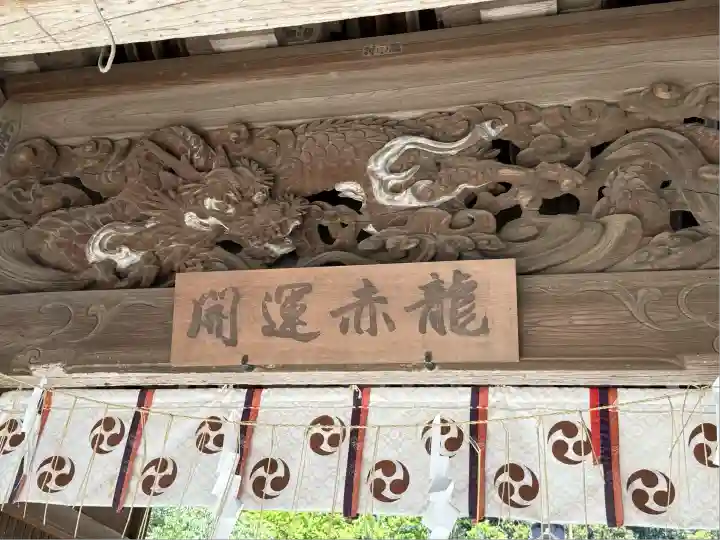 龍赤運開